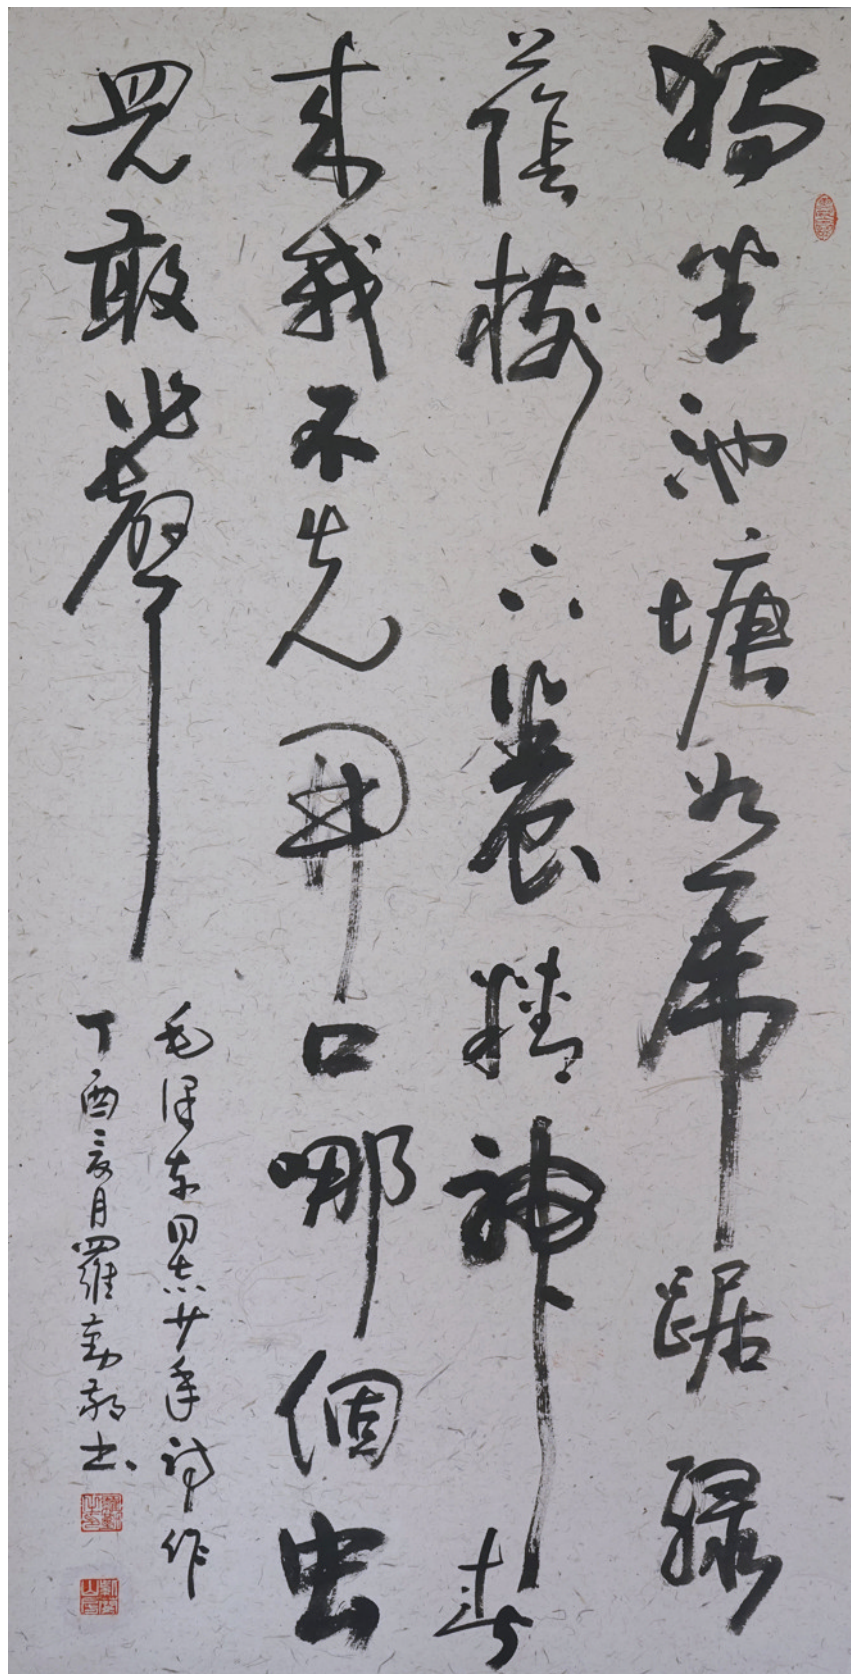 獨坐池塘如虎踞綠
蔭樹下養精神春
來我不先開口哪個虫
兒敢作聲
毛澤東同志少年詩作
丁酉亥月羅勤書